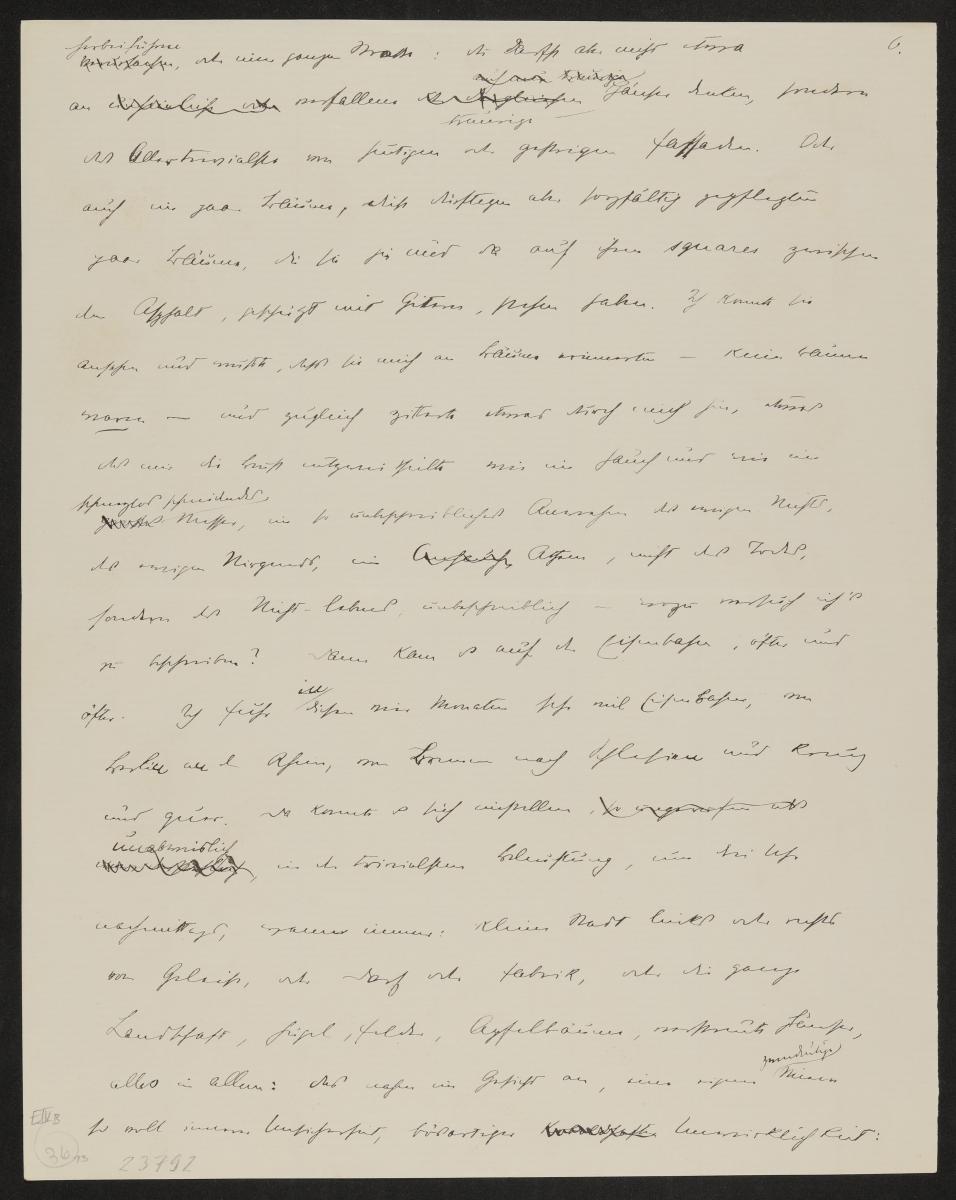 herbeiführen 6.
, oder eine ganze Strasse: du darfst aber nicht etwa
an verfallene Häuser denken, sondern
traurige
das Allertrivialste von heutigen oder gestrigen Fassaden. Oder
auch ein paar Bäume, diese dürftigen aber sorgfältig gepflegten
paar Bäume, die sie hie und da auf ihren squares zwischen
dem Asphalt, geschützt mit Gittern, stehen haben. Ich konnte sie
ansehen und wusste, dass sie mich an Bäume erinnerten – keine Bäume
waren – und zugleich zitterte etwas durch mich hin, etwas
das mir die Brust entzwei theilte wie ein Hauch und wie ein
schneidendes
Messer, ein so unbeschreibliches Anwehen des ewigen Nichts,
des ewigen Nirgends, ein Athem, nicht des Todes,
sondern des Nicht-lebens, unbeschreiblich – wozu versuch ich's
zu beschreiben? Dann kam es auf der Eisenbahn, öfter und
öfter. Ich fuhr in diesen vier Monaten sehr viel Eisenbahn, von
Berlin an den Rhein, von Bremen nach Schlesien und kreuz
und quer. Da konnte es sich einstellen, so
in der trivialsten Beleuchtung, um drei Uhr
nachmittags, wann immer: kleine Stadt links oder rechts
vom Geleise, oder Dorf oder Fabrik, oder die ganze
Landschaft, Hügel, Felder, Apfelbäume, verstreute Häuser,
zweideutige
alles in allem: das nahm ein Gesicht an, eine eigene Miene
so voll innerer Unsicherheit, bösartiger Unwirklichkeit:
E IV B
36
23792